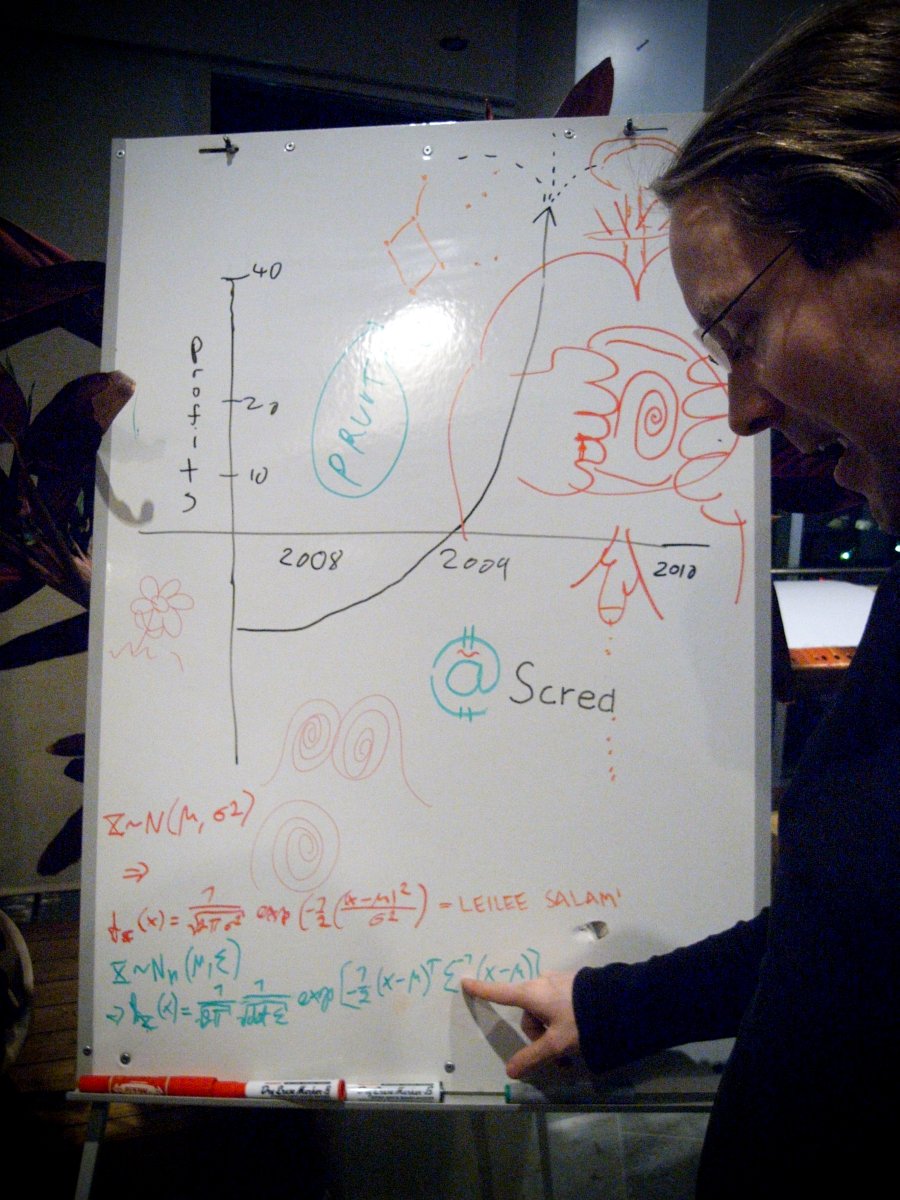 40
Profits
20
10
PRUTT
2008
2009
2010
@ Scred
X~N(μ, σ2)
⇒
fx(x) = 1/√2πσ² exp(-1/2((x-μ)²/σ²)) = LEILEE SALAMI
X~Nn(μ, Σ)
⇒ fx(x) = 1/√2π 1/√det Σ exp[-1/2(x-μ)ᵀ Σ⁻¹(x-μ)]
Dry Erase Marker
Dry Erase Marker